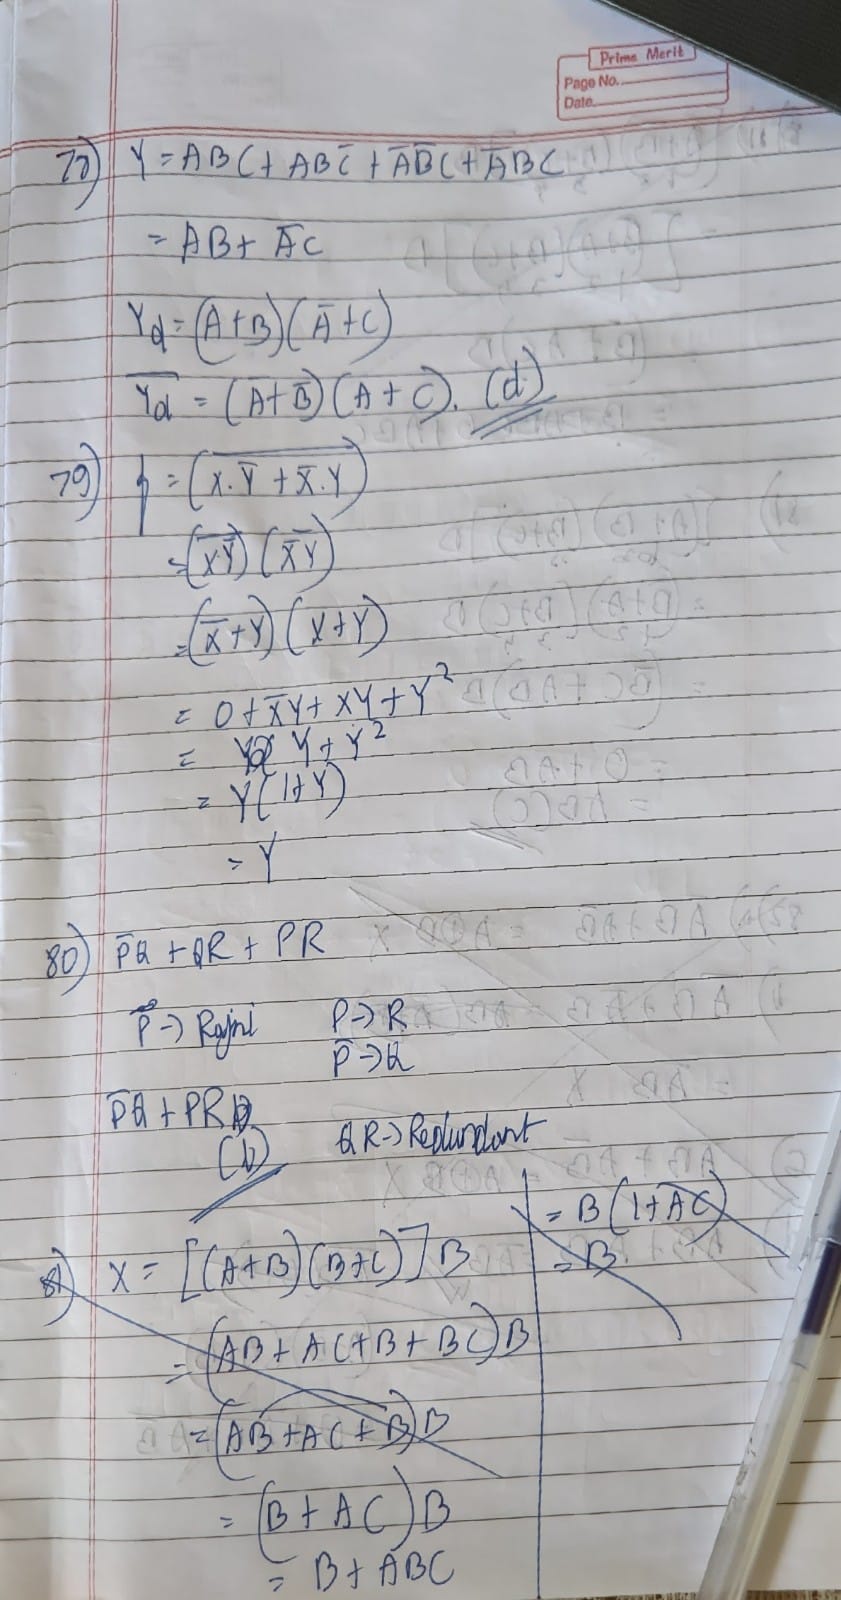 Prime Merit
Page No.
Date
78) Y = ABC + ABC̅ + A̅B̅C + A̅BC
= AB + A̅C
Yd = (A+B)(A̅+C)
Y̅d̅ = (A̅+B̅)(A+C̅). (d)
79) f = (X.Y̅ + X̅.Y)̅
= (XY̅)̅ (X̅Y)̅
= (X̅+Y)(X+Y)
= 0 + X̅Y + XY + Y²
= Y + Y²
= Y(1+Y)
= Y
80) P̅Q + QR + PR
P̅ → Rajni P → R
P̅ → Q
P̅Q + PR
(b) QR → Redundant
81) X = [(A+B)(B+C)]B
= (AB + AC + B + BC)B
= (AB + AC + B)B
= (B + AC)B
= B + ABC
= B(1+AC)
= B